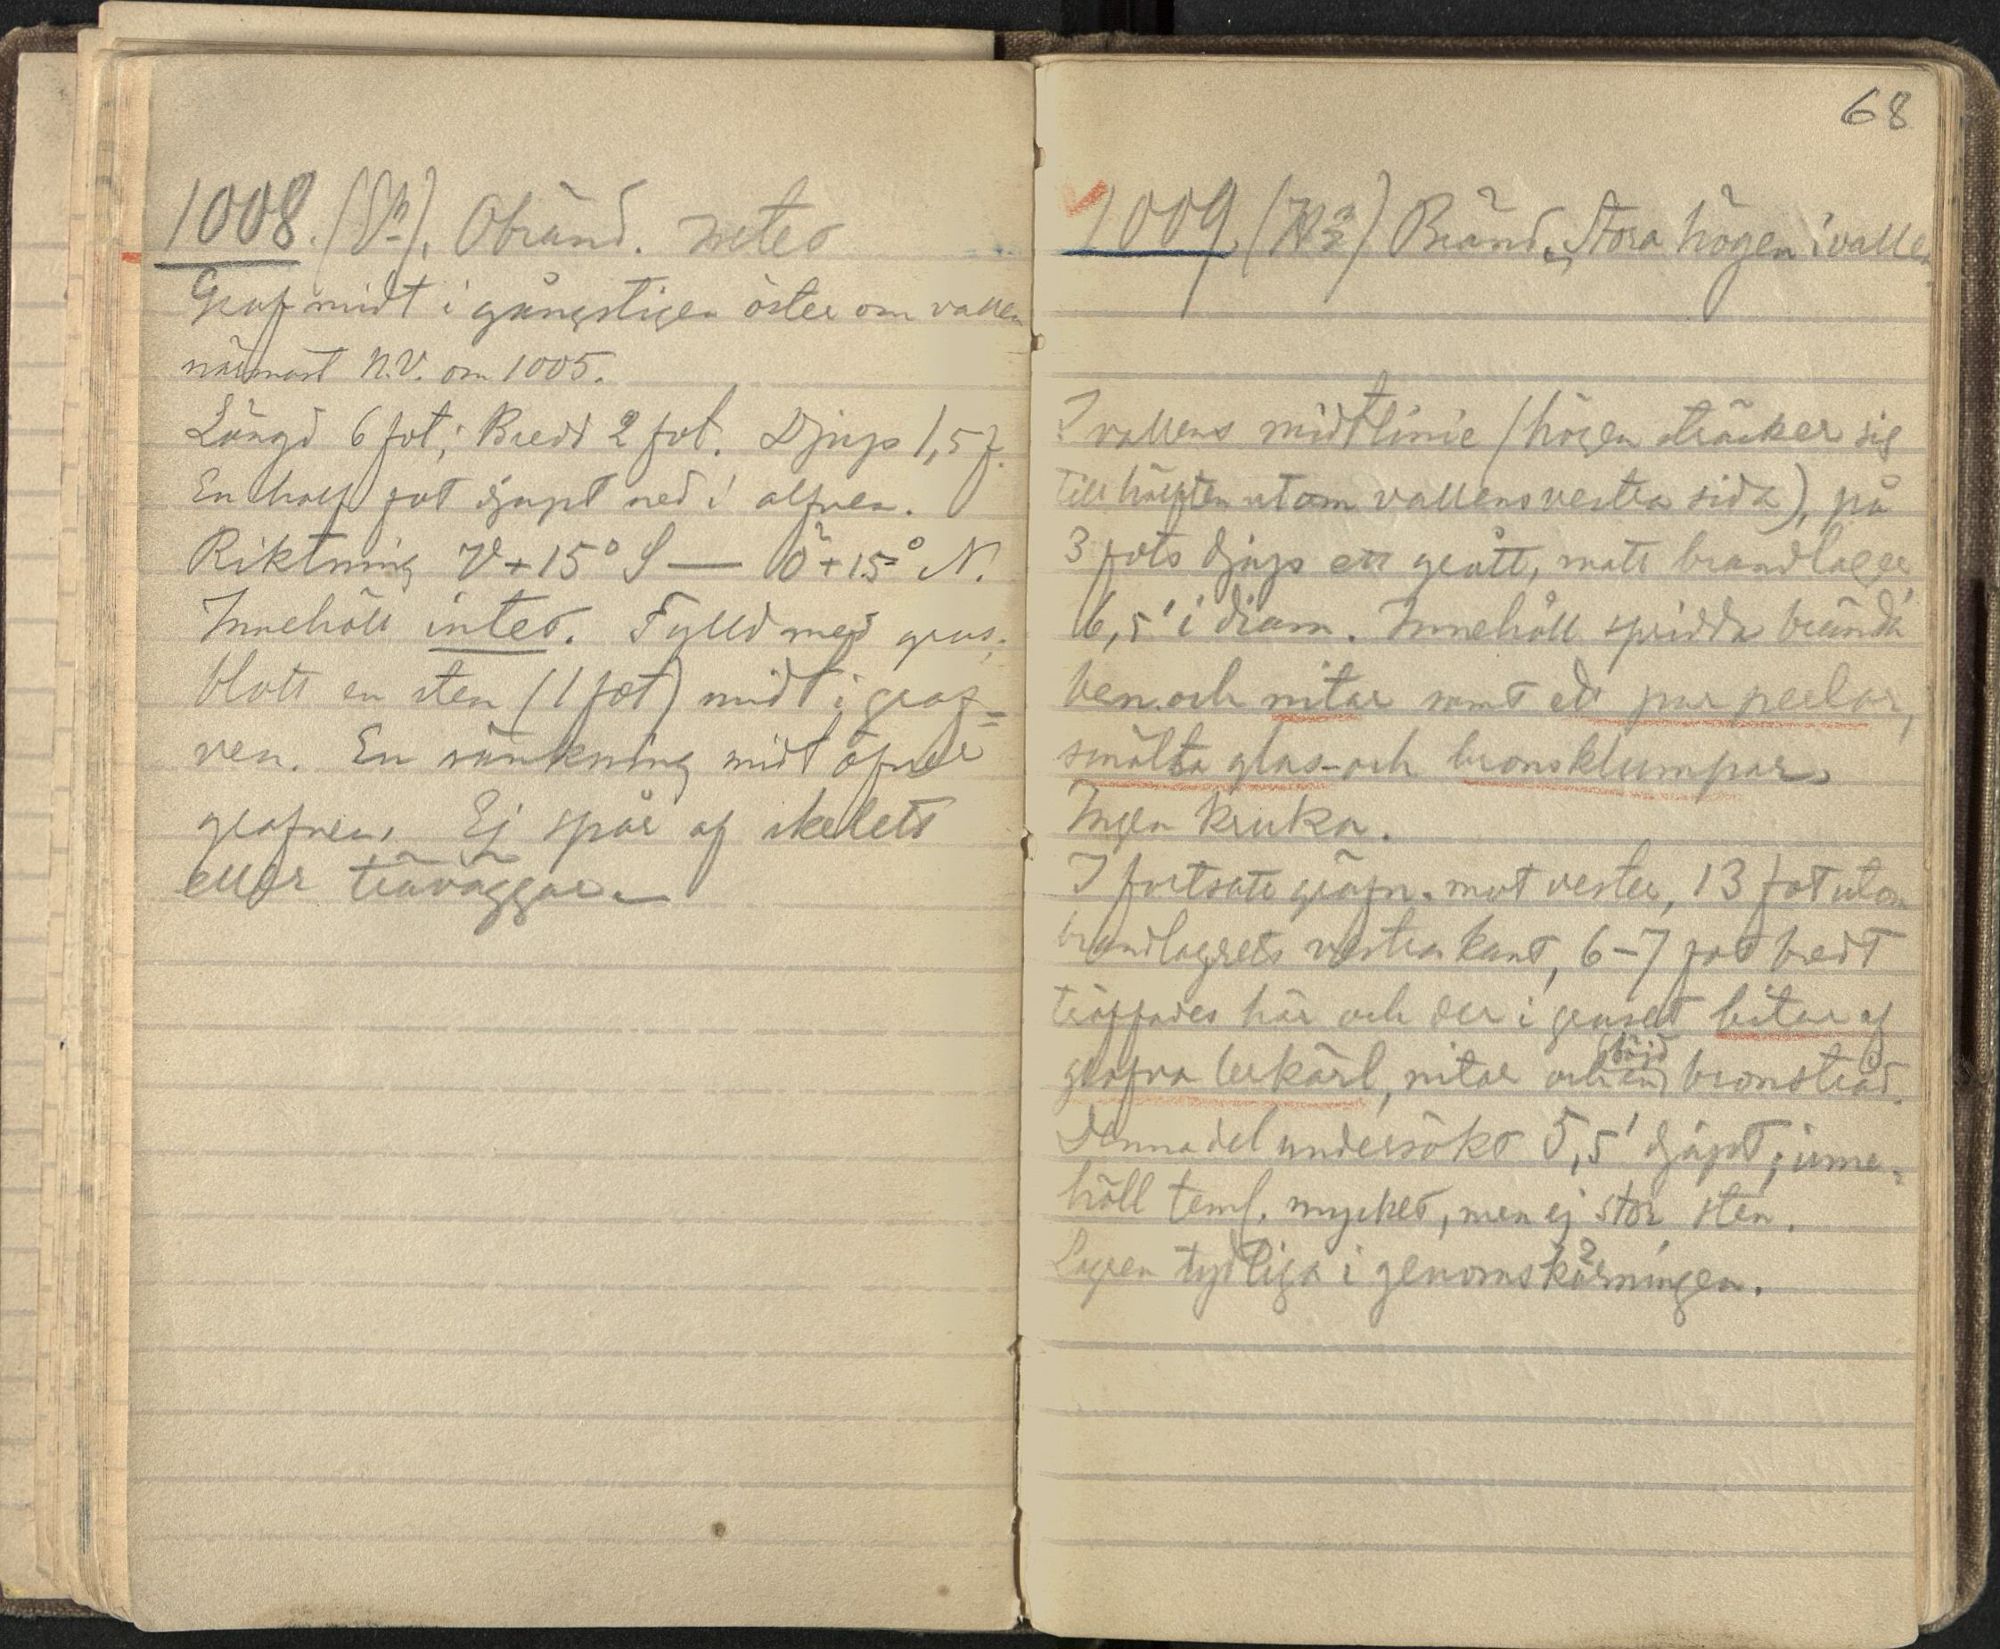 1008. Obränd. intet
Graf midt i gångstigen öster om vallen
närmast N.V. om 1005.
Längd 6 fot; Bredd 2 fot. Djup 1,5 f.
En half fot djupt ned i alfven.
Riktning V+15° S — Ö+15° N.
Innehöll intet. Fylld med grus,
blott en sten (1 fot) midt i graf=
ven. En sänkning midt öfver
grafven. Ej spår af skelett
eller träväggar.
68
1009. Bränd. Stora högen i vallen
I vallens midtlinie (högen sträcker sig
till hälften utom vallens vestra sida), på
3 fots djup ett grått, matt brandlager,
6,5' i diam. Innehöll spridda brända
ben och nitar samt ett par perlor,
smälta glas- och bronsklumpar.
Ingen kruka.
I fortsatt gräfn. mot vester, 13 fot utom
brandlagrets vestra kant, 6-7 fot bredt
träffades här och der i gruset bitar af
grafva lerkärl, nitar och en böjd bronstråd.
Denna del undersökt 5,5' djupt; inne=
höll teml. mycket, men ej stor sten.
Lagren tydliga i genomskärningen.